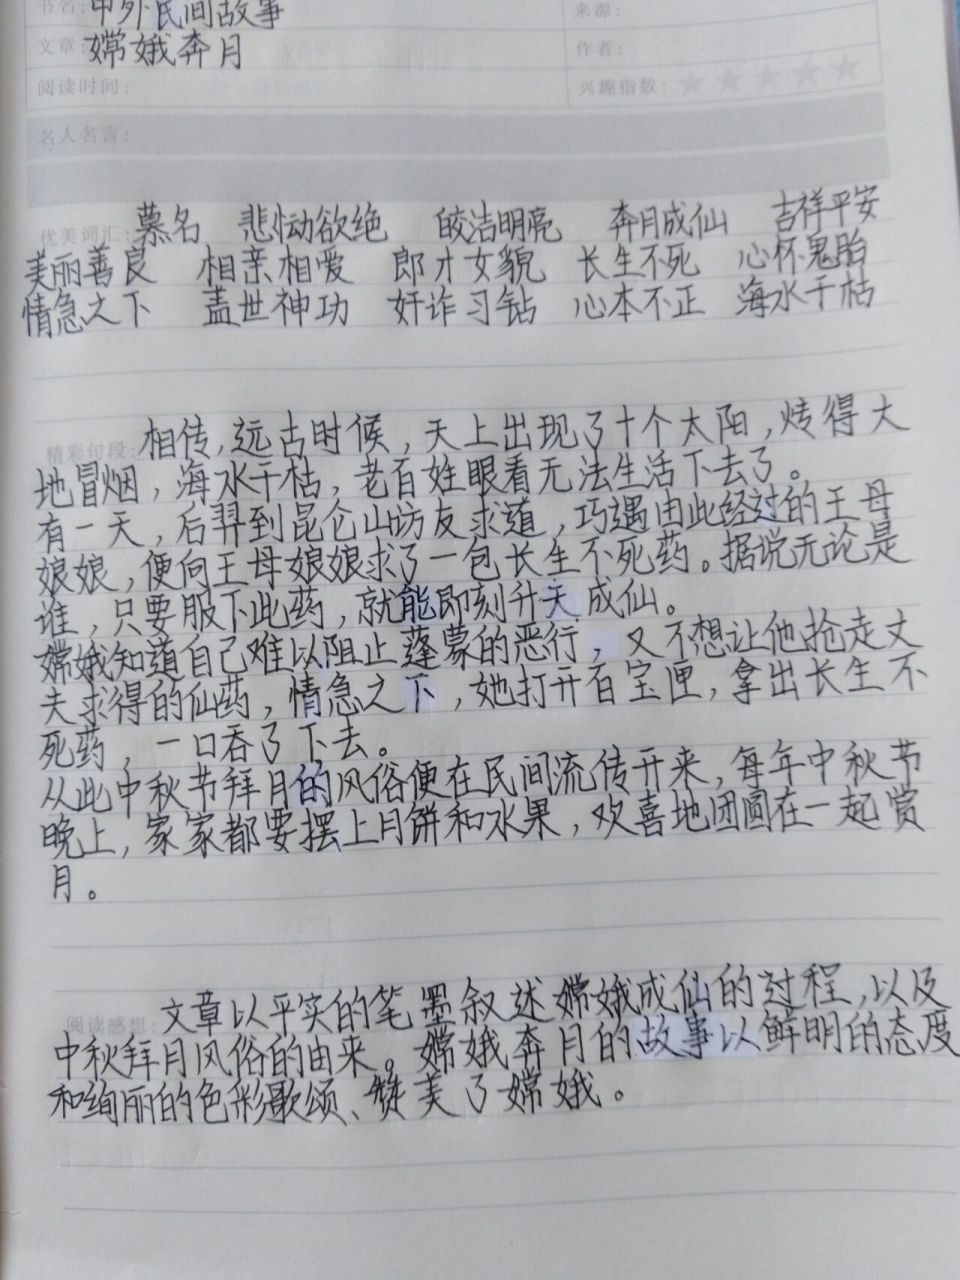 书名:中外民间故事 来源:
文章:嫦娥奔月 作者:
阅读时间: 兴趣指数:★★★★★
名人名言:
优美词汇:慕名 悲恸欲绝 皎洁明亮 奔月成仙 吉祥平安
美丽善良 相亲相爱 郎才女貌 长生不死 心怀鬼胎
情急之下 盖世神功 奸诈习钻 心本不正 海水干枯
精彩句段:相传,远古时候,天上出现了十个太阳,烤得大
地冒烟,海水干枯,老百姓眼看无法生活下去了。
有一天,后羿到昆仑山访友求道,巧遇由此经过的王母
娘娘,便向王母娘娘求了一包长生不死药。据说无论是
谁,只要服下此药,就能即刻升天成仙。
嫦娥知道自己难以阻止蓬蒙的恶行,又不想让他抢走丈
夫求得的仙药,情急之下,她打开百宝匣,拿出长生不
死药,一口吞了下去。
从此中秋节拜月的风俗便在民间流传开来,每年中秋节
晚上,家家都要摆上月饼和水果,欢喜地团圆在一起赏
月。
阅读感想:文章以平实的笔墨叙述嫦娥成仙的过程,以及
中秋拜月风俗的由来。嫦娥奔月的故事以鲜明的态度
和绚丽的色彩歌颂、赞美了嫦娥。